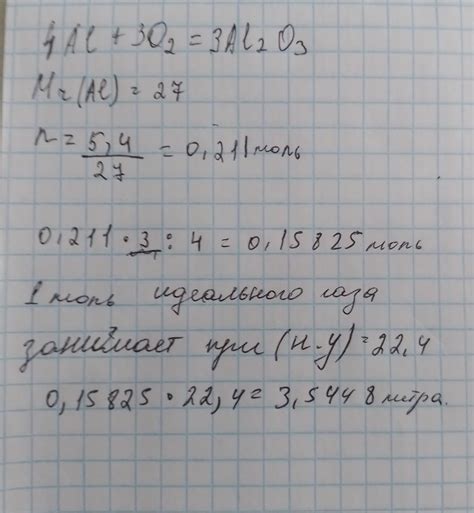 4Al + 3O₂ = 3Al₂O₃
Mr(Al) = 27
n = 5,4/27 = 0,211 моль
0,211 · 3 : 4 = 0,15825 моль
1 моль идеального газа
занимает при (н.у) = 22,4
0,15825 · 22,4 = 3,5448 литра.